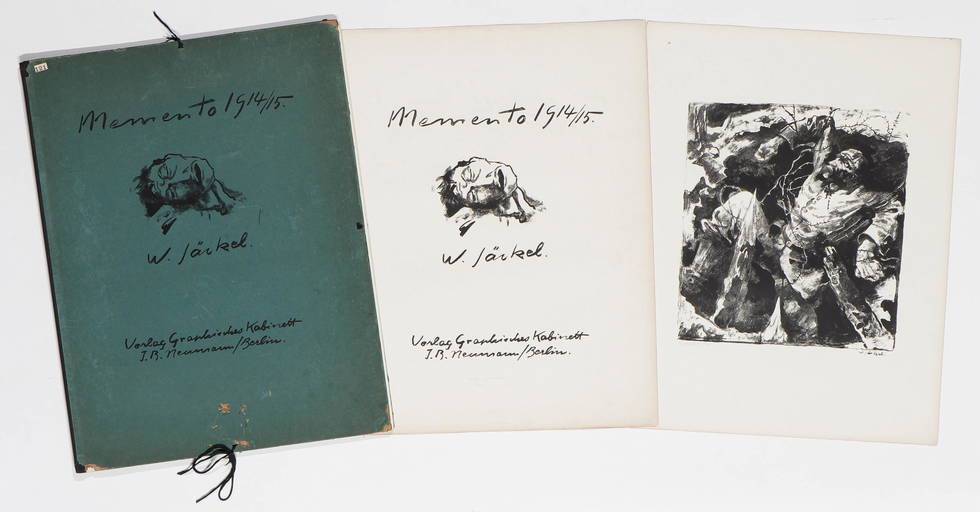 101
Memento 1914/15.
W. Järkel.
Verlag Graphisches Kabinett
J.B. Neumann/Berlin.
Memento 1914/15.
W. Järkel.
Verlag Graphisches Kabinett
J.B. Neumann/Berlin.